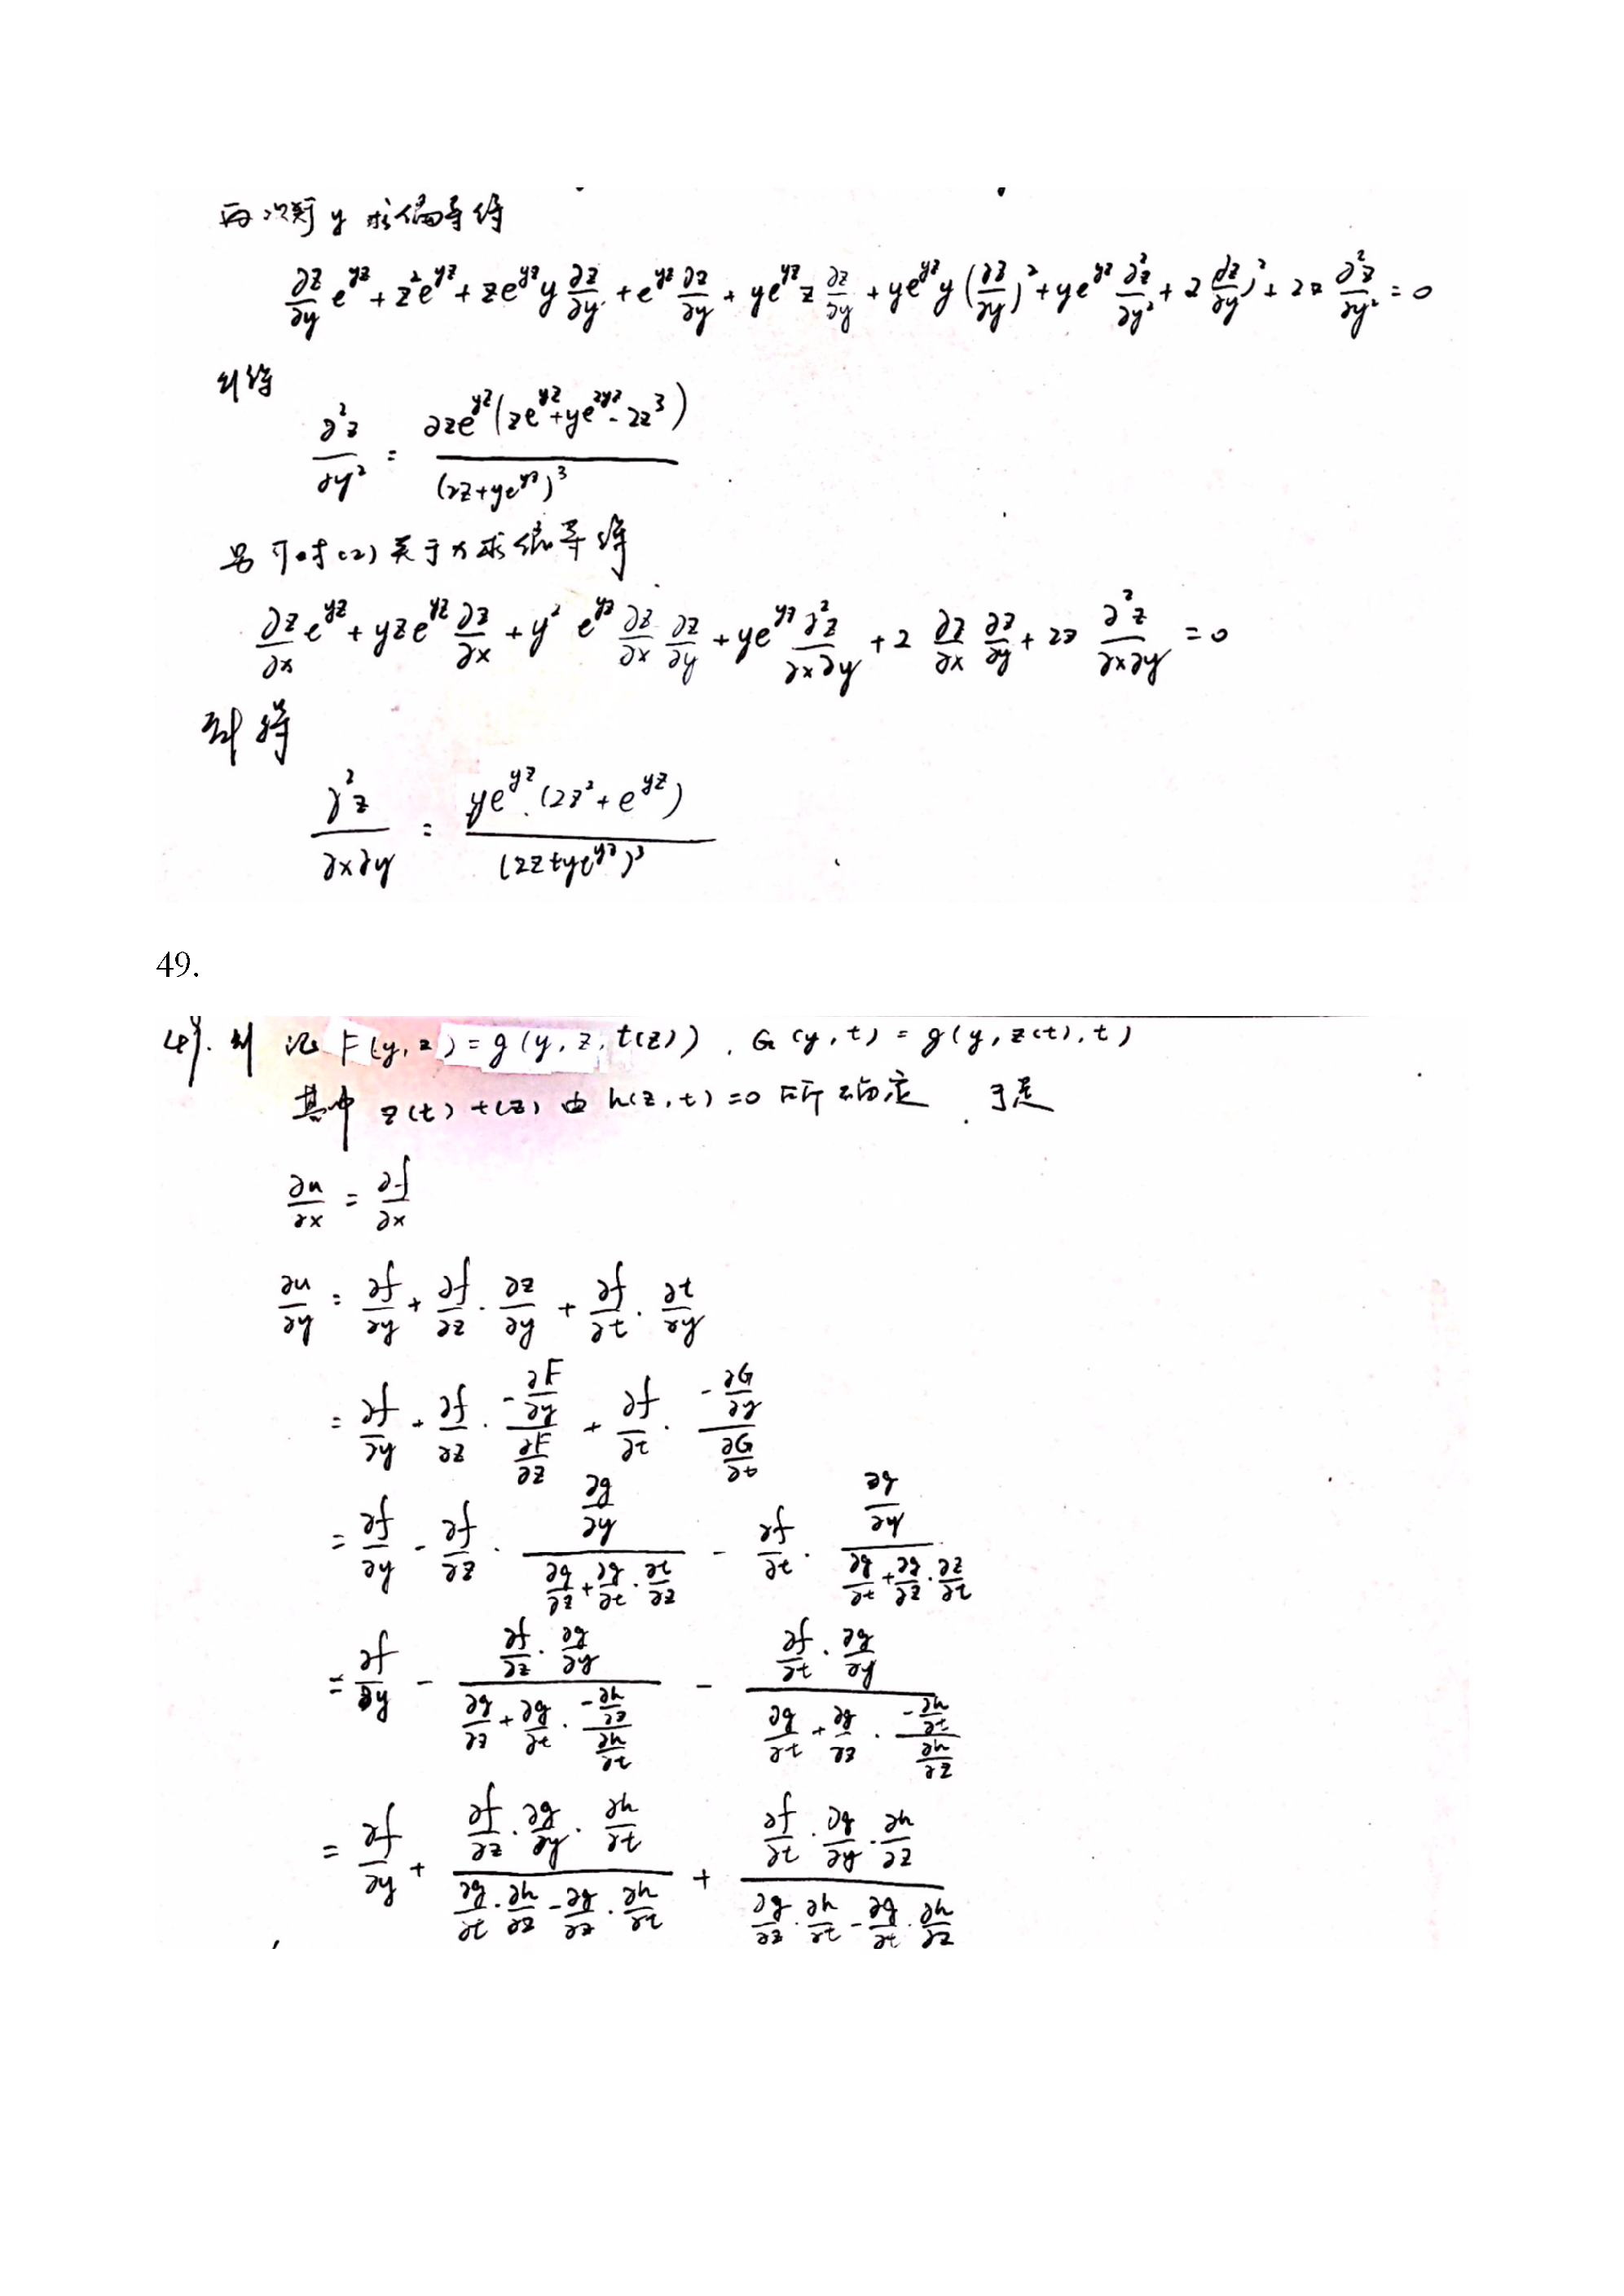 再次对 y 求偏导得
∂z/∂y e^{yz} + z²e^{yz} + ze^{yz} y ∂z/∂y + e^{yz} ∂z/∂y + ye^{yz} z ∂z/∂y + ye^{yz} y (∂z/∂y)² + ye^{yz} ∂²z/∂y² + 2 ∂z/∂y)² + 2z ∂²z/∂y² = 0
解得
∂²z/∂y² = 2ze^{yz}(ze^{yz} + ye^{2yz} - 2z³) / (2z+ye^{yz})³
另 可对 (2) 关于 x 求偏导得
∂z/∂x e^{yz} + yze^{yz} ∂z/∂x + y² e^{yz} ∂z/∂x ∂z/∂y + ye^{yz} ∂²z/∂x∂y + 2 ∂z/∂x ∂z/∂y + 2z ∂²z/∂x∂y = 0
解得
∂²z/∂x∂y = ye^{yz}(2z² + e^{yz}) / (2z+ye^{yz})³
49.
49. 解 记 F(y, z) = g(y, z, t(z)), G(y, t) = g(y, z(t), t)
其中 z(t) t(z) 由 h(z, t) = 0 所确定. 于是
∂u/∂x = ∂f/∂x
∂u/∂y = ∂f/∂y + ∂f/∂z · ∂z/∂y + ∂f/∂t · ∂t/∂y
= ∂f/∂y + ∂f/∂z · (-∂F/∂y)/(∂F/∂z) + ∂f/∂t · (-∂G/∂y)/(∂G/∂t)
= ∂f/∂y - ∂f/∂z · (∂g/∂y)/(∂g/∂z + ∂g/∂t · ∂t/∂z) - ∂f/∂t · (∂g/∂y)/(∂g/∂t + ∂g/∂z · ∂z/∂t)
= ∂f/∂y - (∂f/∂z · ∂g/∂y)/(∂g/∂z + ∂g/∂t · (-∂h/∂z)/(∂h/∂t)) - (∂f/∂t · ∂g/∂y)/(∂g/∂t + ∂g/∂z · (-∂h/∂t)/(∂h/∂z))
= ∂f/∂y + (∂f/∂z · ∂g/∂y · ∂h/∂t)/(∂g/∂t · ∂h/∂z - ∂g/∂z · ∂h/∂t) + (∂f/∂t · ∂g/∂y · ∂h/∂z)/(∂g/∂z · ∂h/∂t - ∂g/∂t · ∂h/∂z)